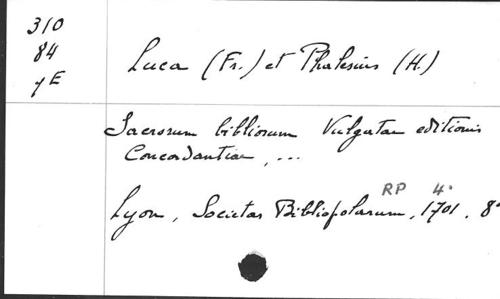 310
84
yE
Luca (Fr.) et Phalesius (H.)
Sacrorum bibliorum Vulgatae editionis
Concordantiae, ...
RP 4°
Lyon, Societas Bibliopolarum, 1701, 8°